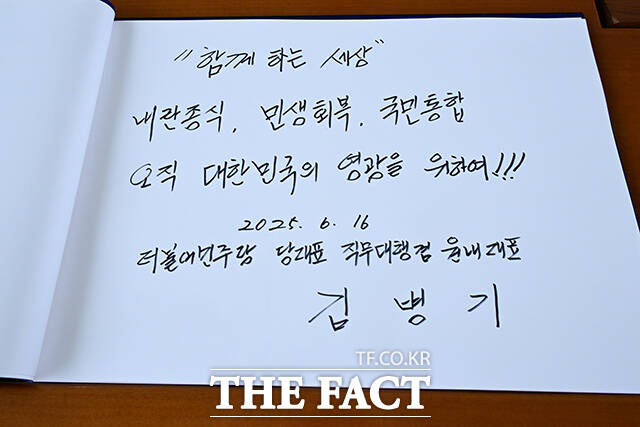 "함께 하는 세상"
내란종식, 민생회복, 국민통합
오직 대한민국의 영광을 위하여!!!
2025. 6. 16
더불어민주당 당대표 직무대행겸 원내대표
김 병 기
TF.CO.KR
THE FACT